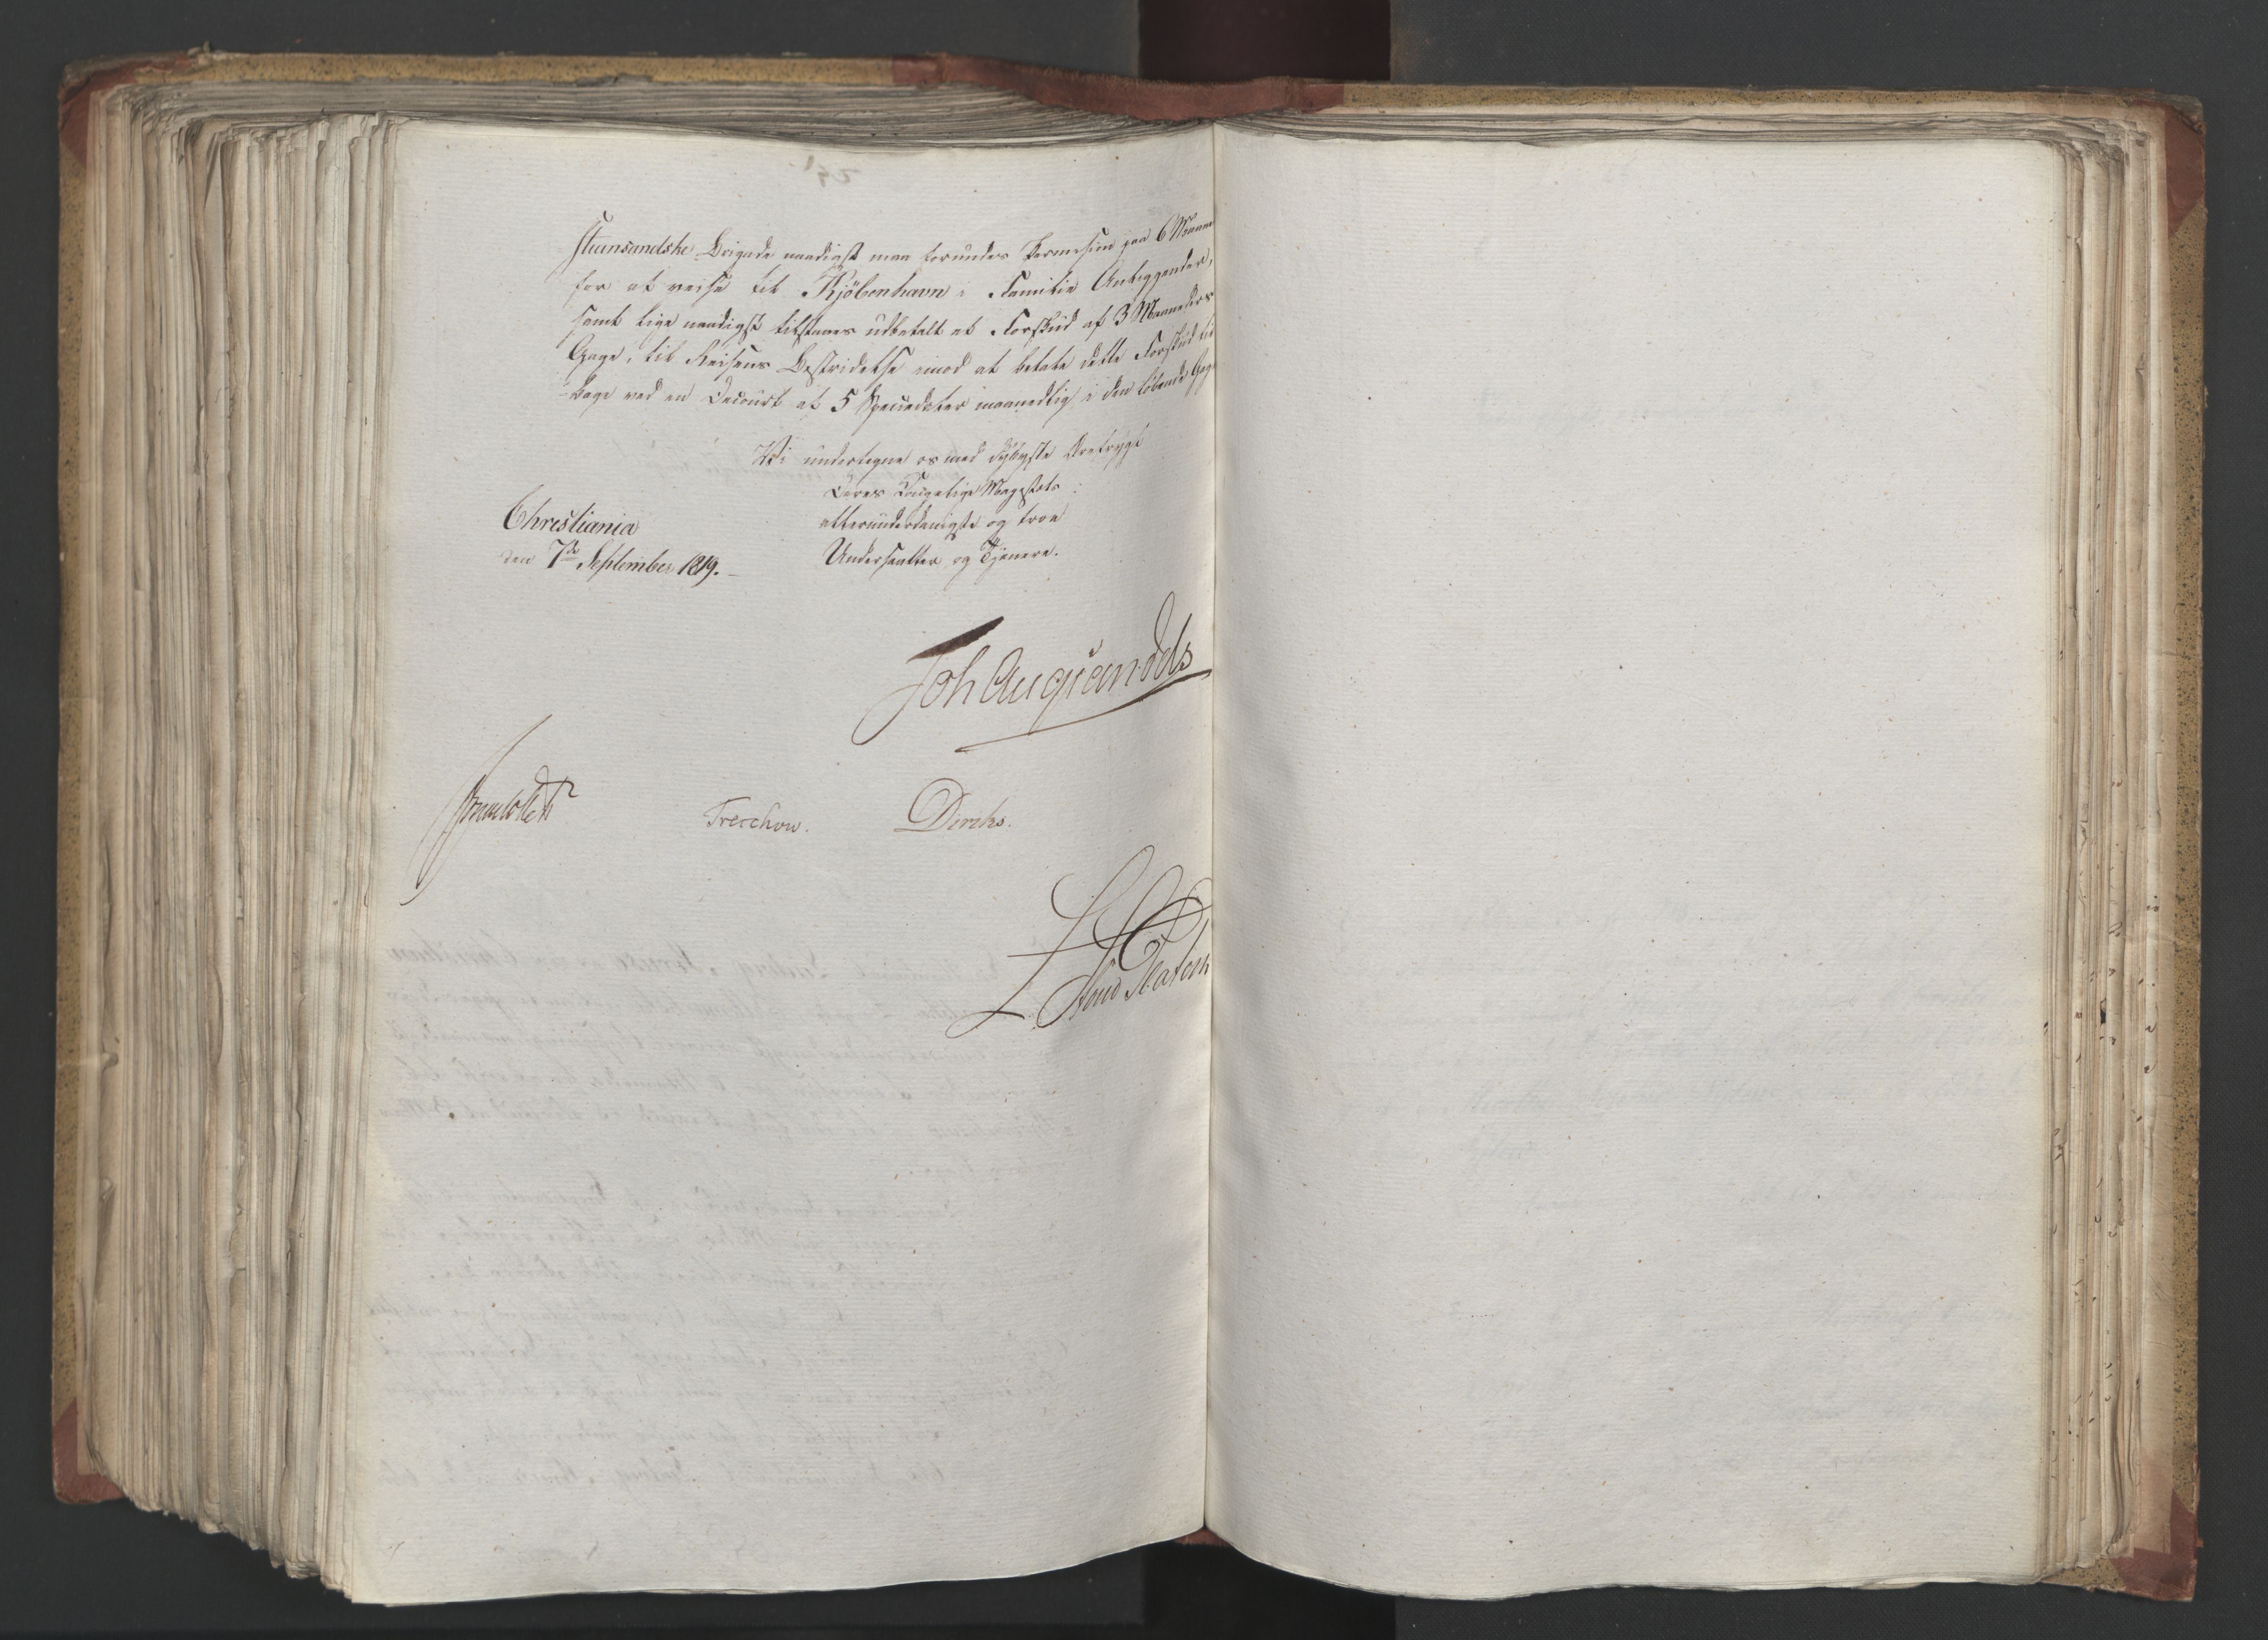 stiansandske Brigade naadigst maa forundes Permission paa 6 Maaneder
for at reise til Kjöbenhavn i Familie Anliggender,
samt lige naadigst tilstaaes udbetalt et Forskud af 3 Maaneders
Gage, til Reisens Bestridelse imod at betale dette Forskud til-
-bage ved en Decourt af 5 Speciedaler maanedlig i den löbende Gage
Vi undertegne os med dybeste Ærefrygt
Deres Kongelige Majestæts
allerunderdanigste og troe
Undersaatter og Tjenere.
Christiania
den 7de September 1819.
Treschow.
Diriks.